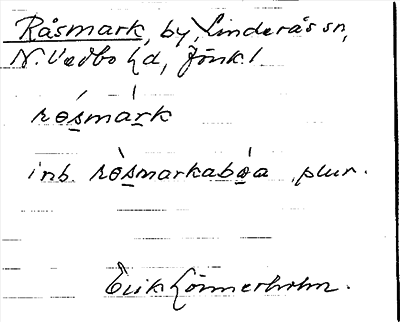 Råsmark, by, Linderås sn,
N. Vedbo hd, Jönk. l
rɵsmark
inb. rɵsmarkabɵa, plur.
Erik Lönnerholm.